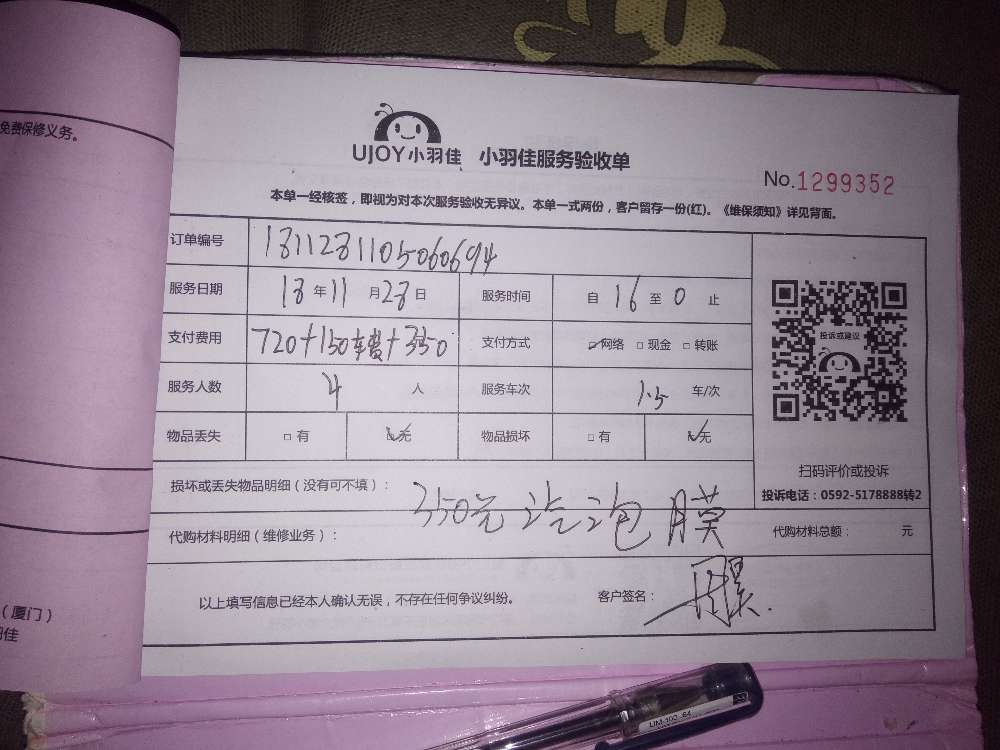 免费保修义务。
UJOY小羽佳 小羽佳服务验收单
No.1299352
本单一经核签，即视为对本次服务验收无异议。本单一式两份，客户留存一份(红)。《维保须知》详见背面。
订单编号 1811281105060694
服务日期 18年11月28日 服务时间 自16至0止
支付费用 720+150车费+350 支付方式 ☑网络 □现金 □转账
服务人数 4人 服务车次 1.5车/次
物品丢失 □有 ☑无 物品损坏 □有 ☑无
投诉或建议
扫码评价或投诉
投诉电话：0592-5178888转2
损坏或丢失物品明细（没有可不填）：
350元汽泡膜
代购材料明细（维修业务）： 代购材料总额： 元
以上填写信息已经本人确认无误，不存在任何争议纠纷。 客户签名：
（厦门）
羽佳